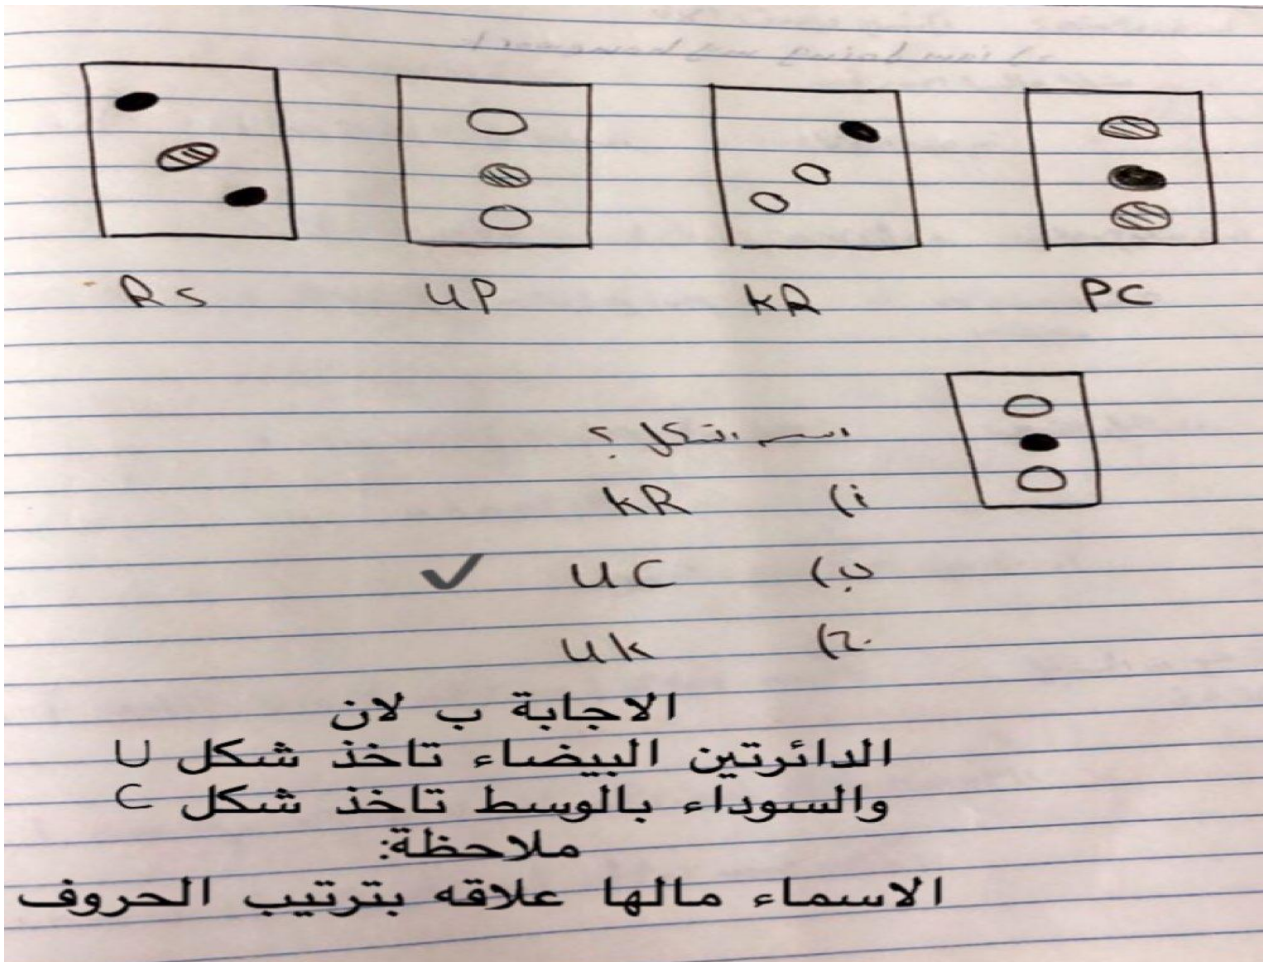 Rs UP KR PC
اسم الشكل ؟
أ) KR
ب) UC ✓
ج) Uk
الاجابة ب لان
الدائرتين البيضاء تاخذ شكل U
والسوداء بالوسط تاخذ شكل C
ملاحظة:
الاسماء مالها علاقه بترتيب الحروف